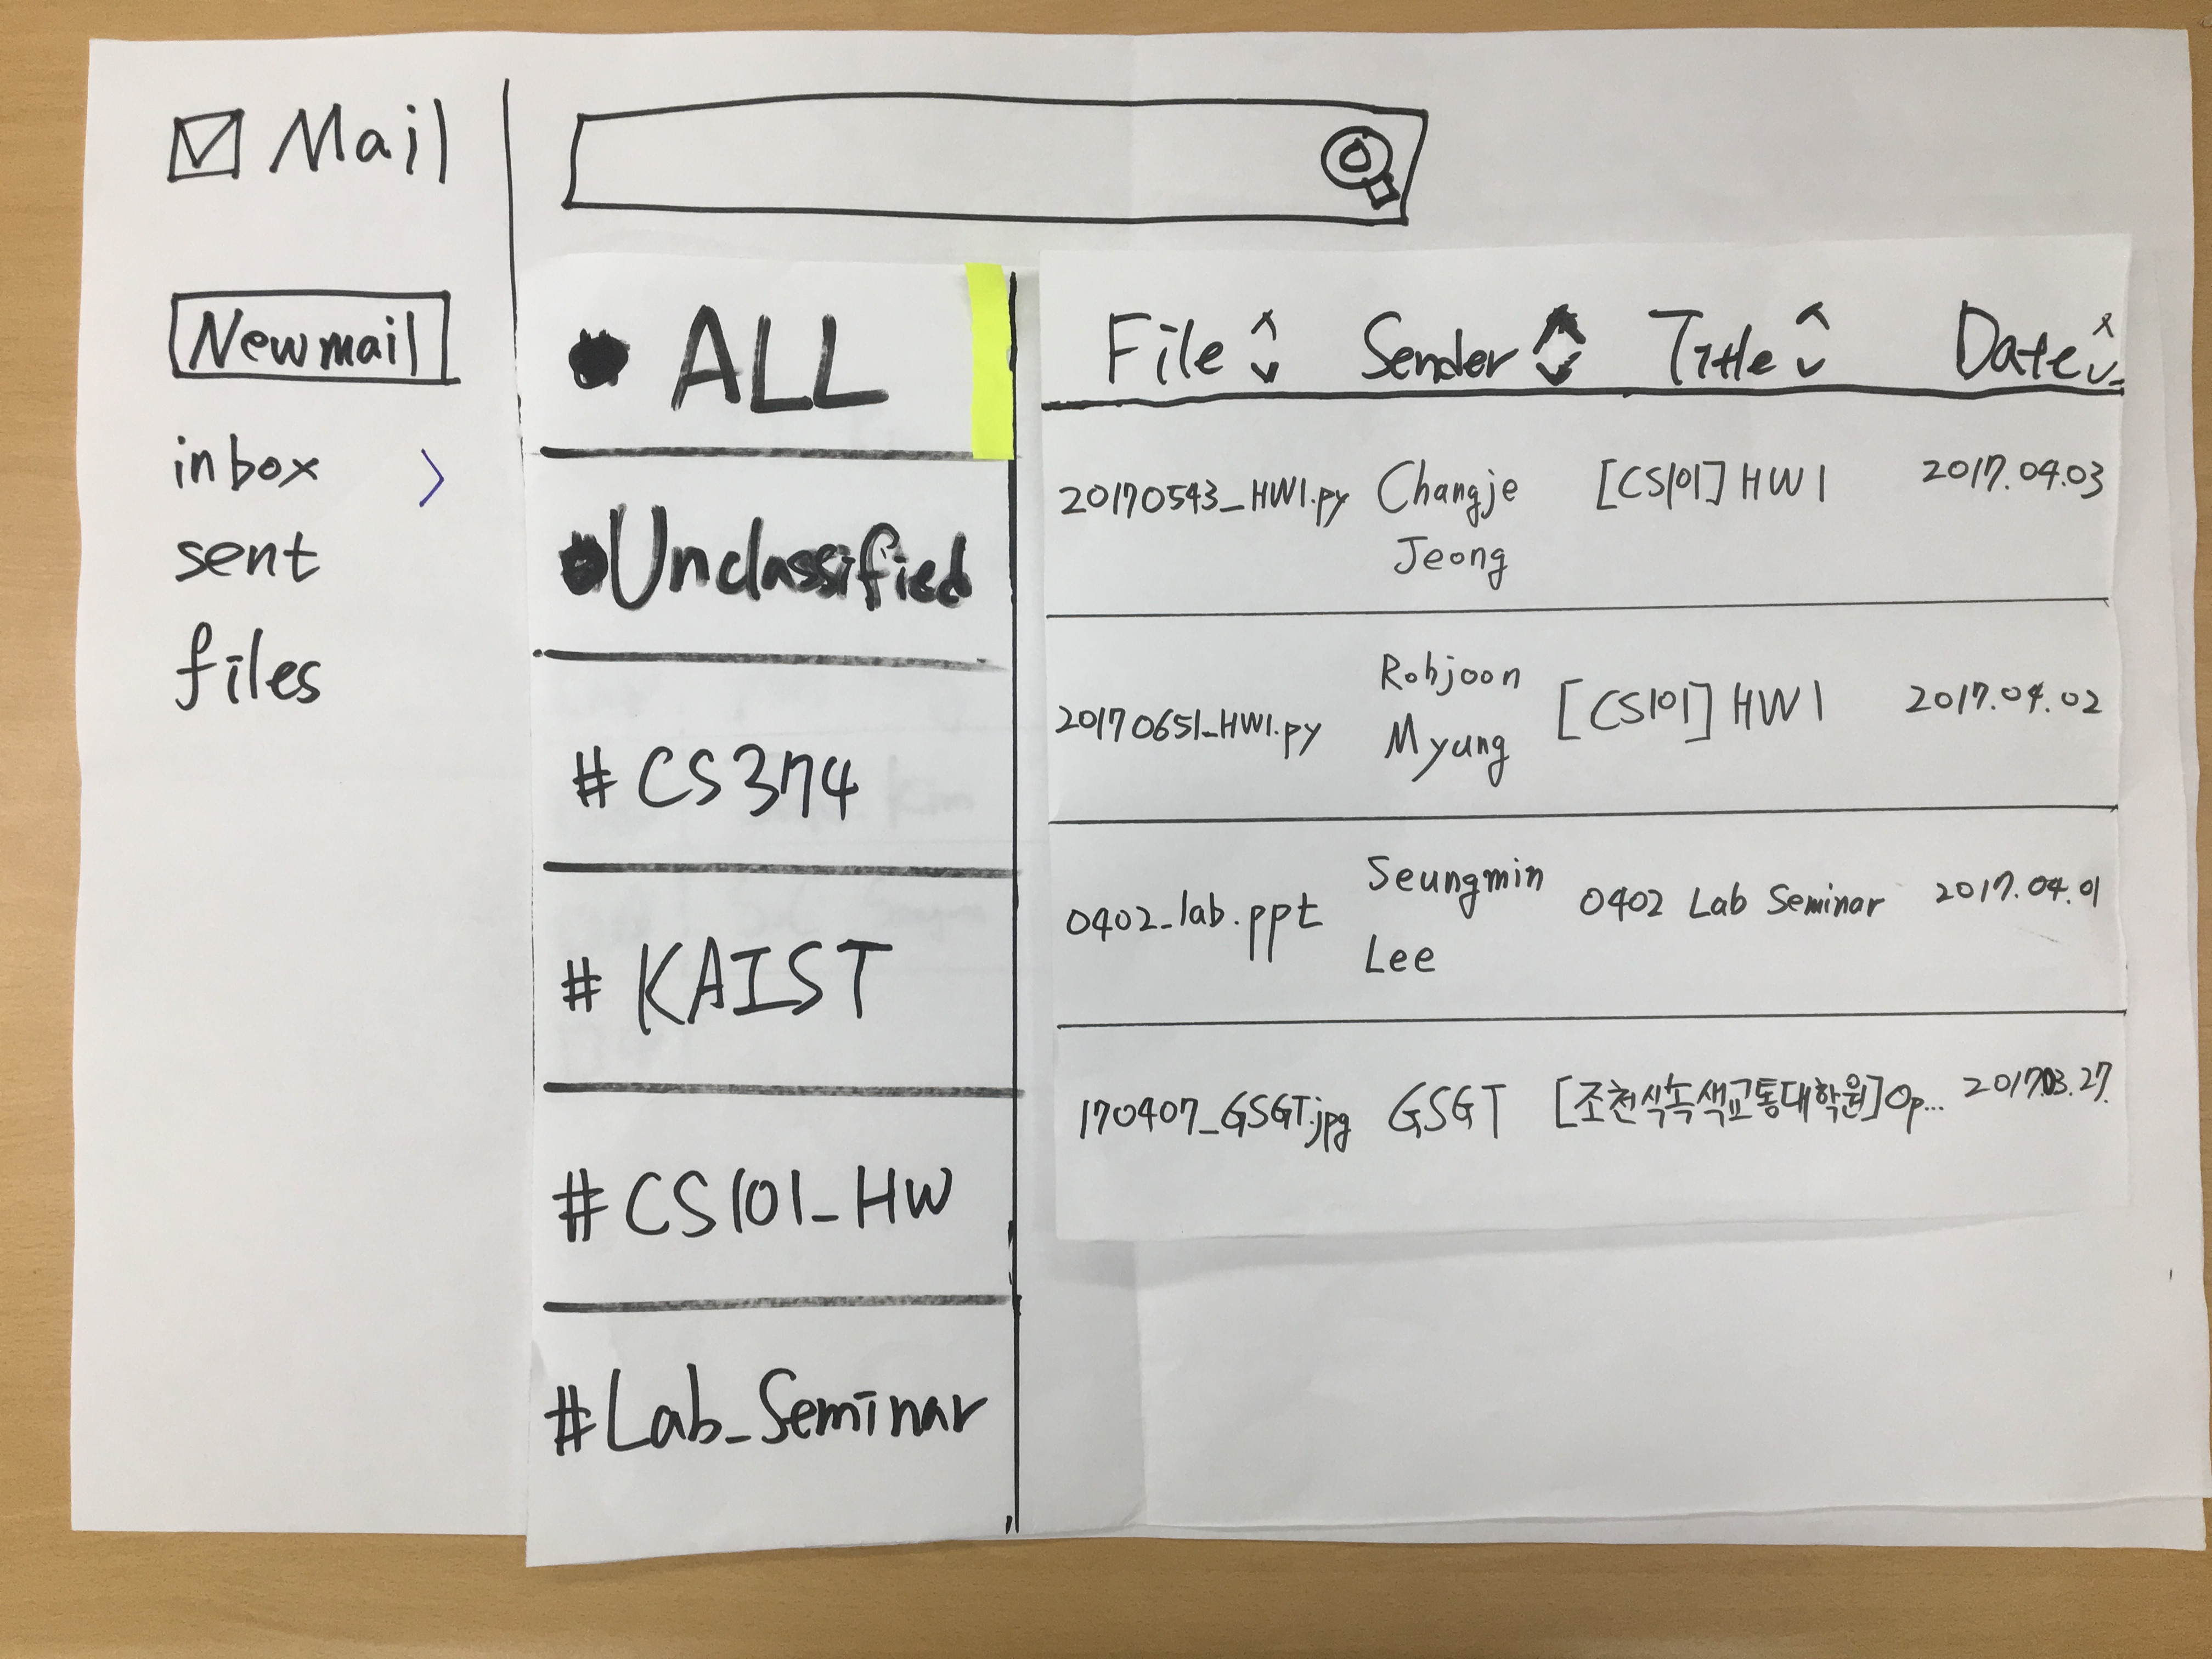 Mail
Newmail
inbox >
sent
files
ALL
Unclassified
#CS374
#KAIST
#CS101_HW
#Lab_Seminar
File Sender Title Date
20170543_HW1.py Changje Jeong [CS101] HW1 2017.04.03
20170651_HW1.py Rohjoon Myung [CS101] HW1 2017.04.02
0402_lab.ppt Seungmin Lee 0402 Lab Seminar 2017.04.01
170407_GSGT.jpg GSGT [조천식녹색교통대학원]Op... 2017.03.27.